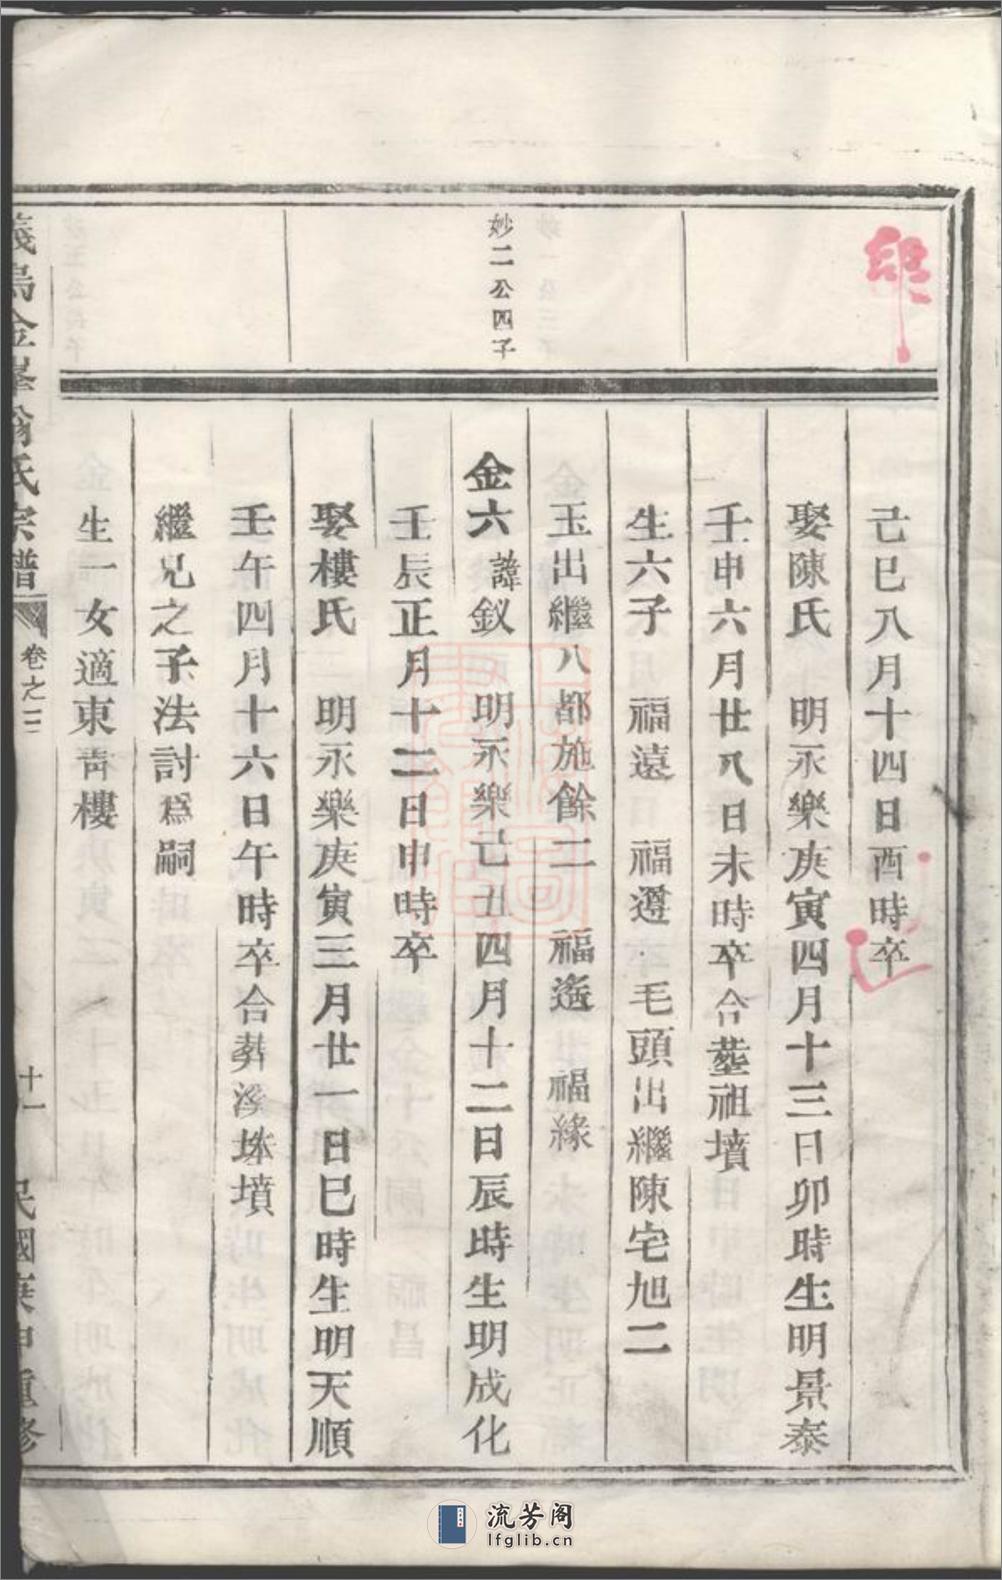 己巳八月十四日酉時卒
娶陳氏 明永樂庚寅四月十三日卯時生明景泰
壬申六月廿八日未時卒合塟祖墳
生六子 福遠 福遵 毛頭出繼陳宅旭二
玉出繼八都施餘二 福遙 福緣
妙二公四子
金六諱釵 明永樂己丑四月十二日辰時生明成化
壬辰正月十二日申時卒
娶樓氏 明永樂庚寅三月廿一日巳時生明天順
壬午四月十六日午時卒合葬溪墳
繼兄之子法討爲嗣
生一女適東青樓
義烏金峯翁氏宗譜 卷之三 十一 民國庚申重修
流芳阁
lfglib.cn